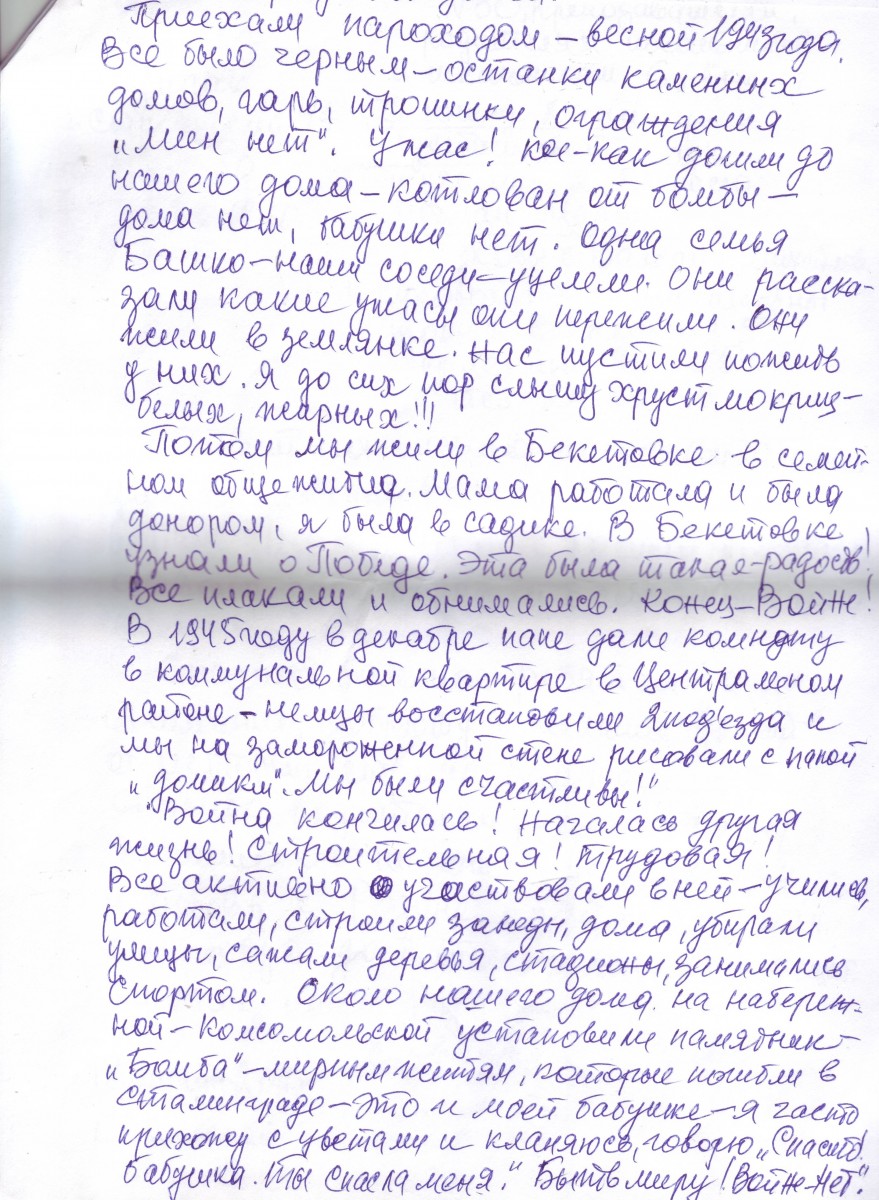 Приехали пароходом – весной 1943 года.
Все было черным – останки каменных
домов, гарь, тропинки, ограждения
„Мин нет". Ужас! Кое-как дошли до
нашего дома – котлован от бомбы –
дома нет, бабушки нет. Одна семья
Башко – наши соседи – уцелели. Они расска-
зали какие ужасы они пережили. Они
жили в землянке. Нас пустили пожить
у них. Я до сих пор слышу хруст мокриц –
белых, жирных!!!
Потом мы жили в Бекетовке в семей-
ном общежитии. Мама работала и была
донором, я была в садике. В Бекетовке
узнали о Победе. Эта была такая – радость!
Все плакали и обнимались. Конец – Войне!
В 1945 году в декабре папе дали комнату
в коммунальной квартире в Центральном
районе – немцы восстановили 2 под'езда и
мы на замороженной стене рисовали с папой
„домики". Мы были счастливы!"
"Война кончилась! Началась другая
жизнь! Строительная! Трудовая!
Все активно участвовали в ней – учились,
работали, строили заводы, дома, убирали
улицы, сажали деревья, стадионы, занимались
спортом. Около нашего дома на набереж-
ной – Комсомольской установили памятник –
„Бомба" – мирным жителям, которые погибли в
Сталинграде – Это и моей бабушке – я часто
прихожу с цветами и кланяюсь, говорю „Спасибо!
бабушка. Ты спасла меня". Быть миру! Войне – Нет".